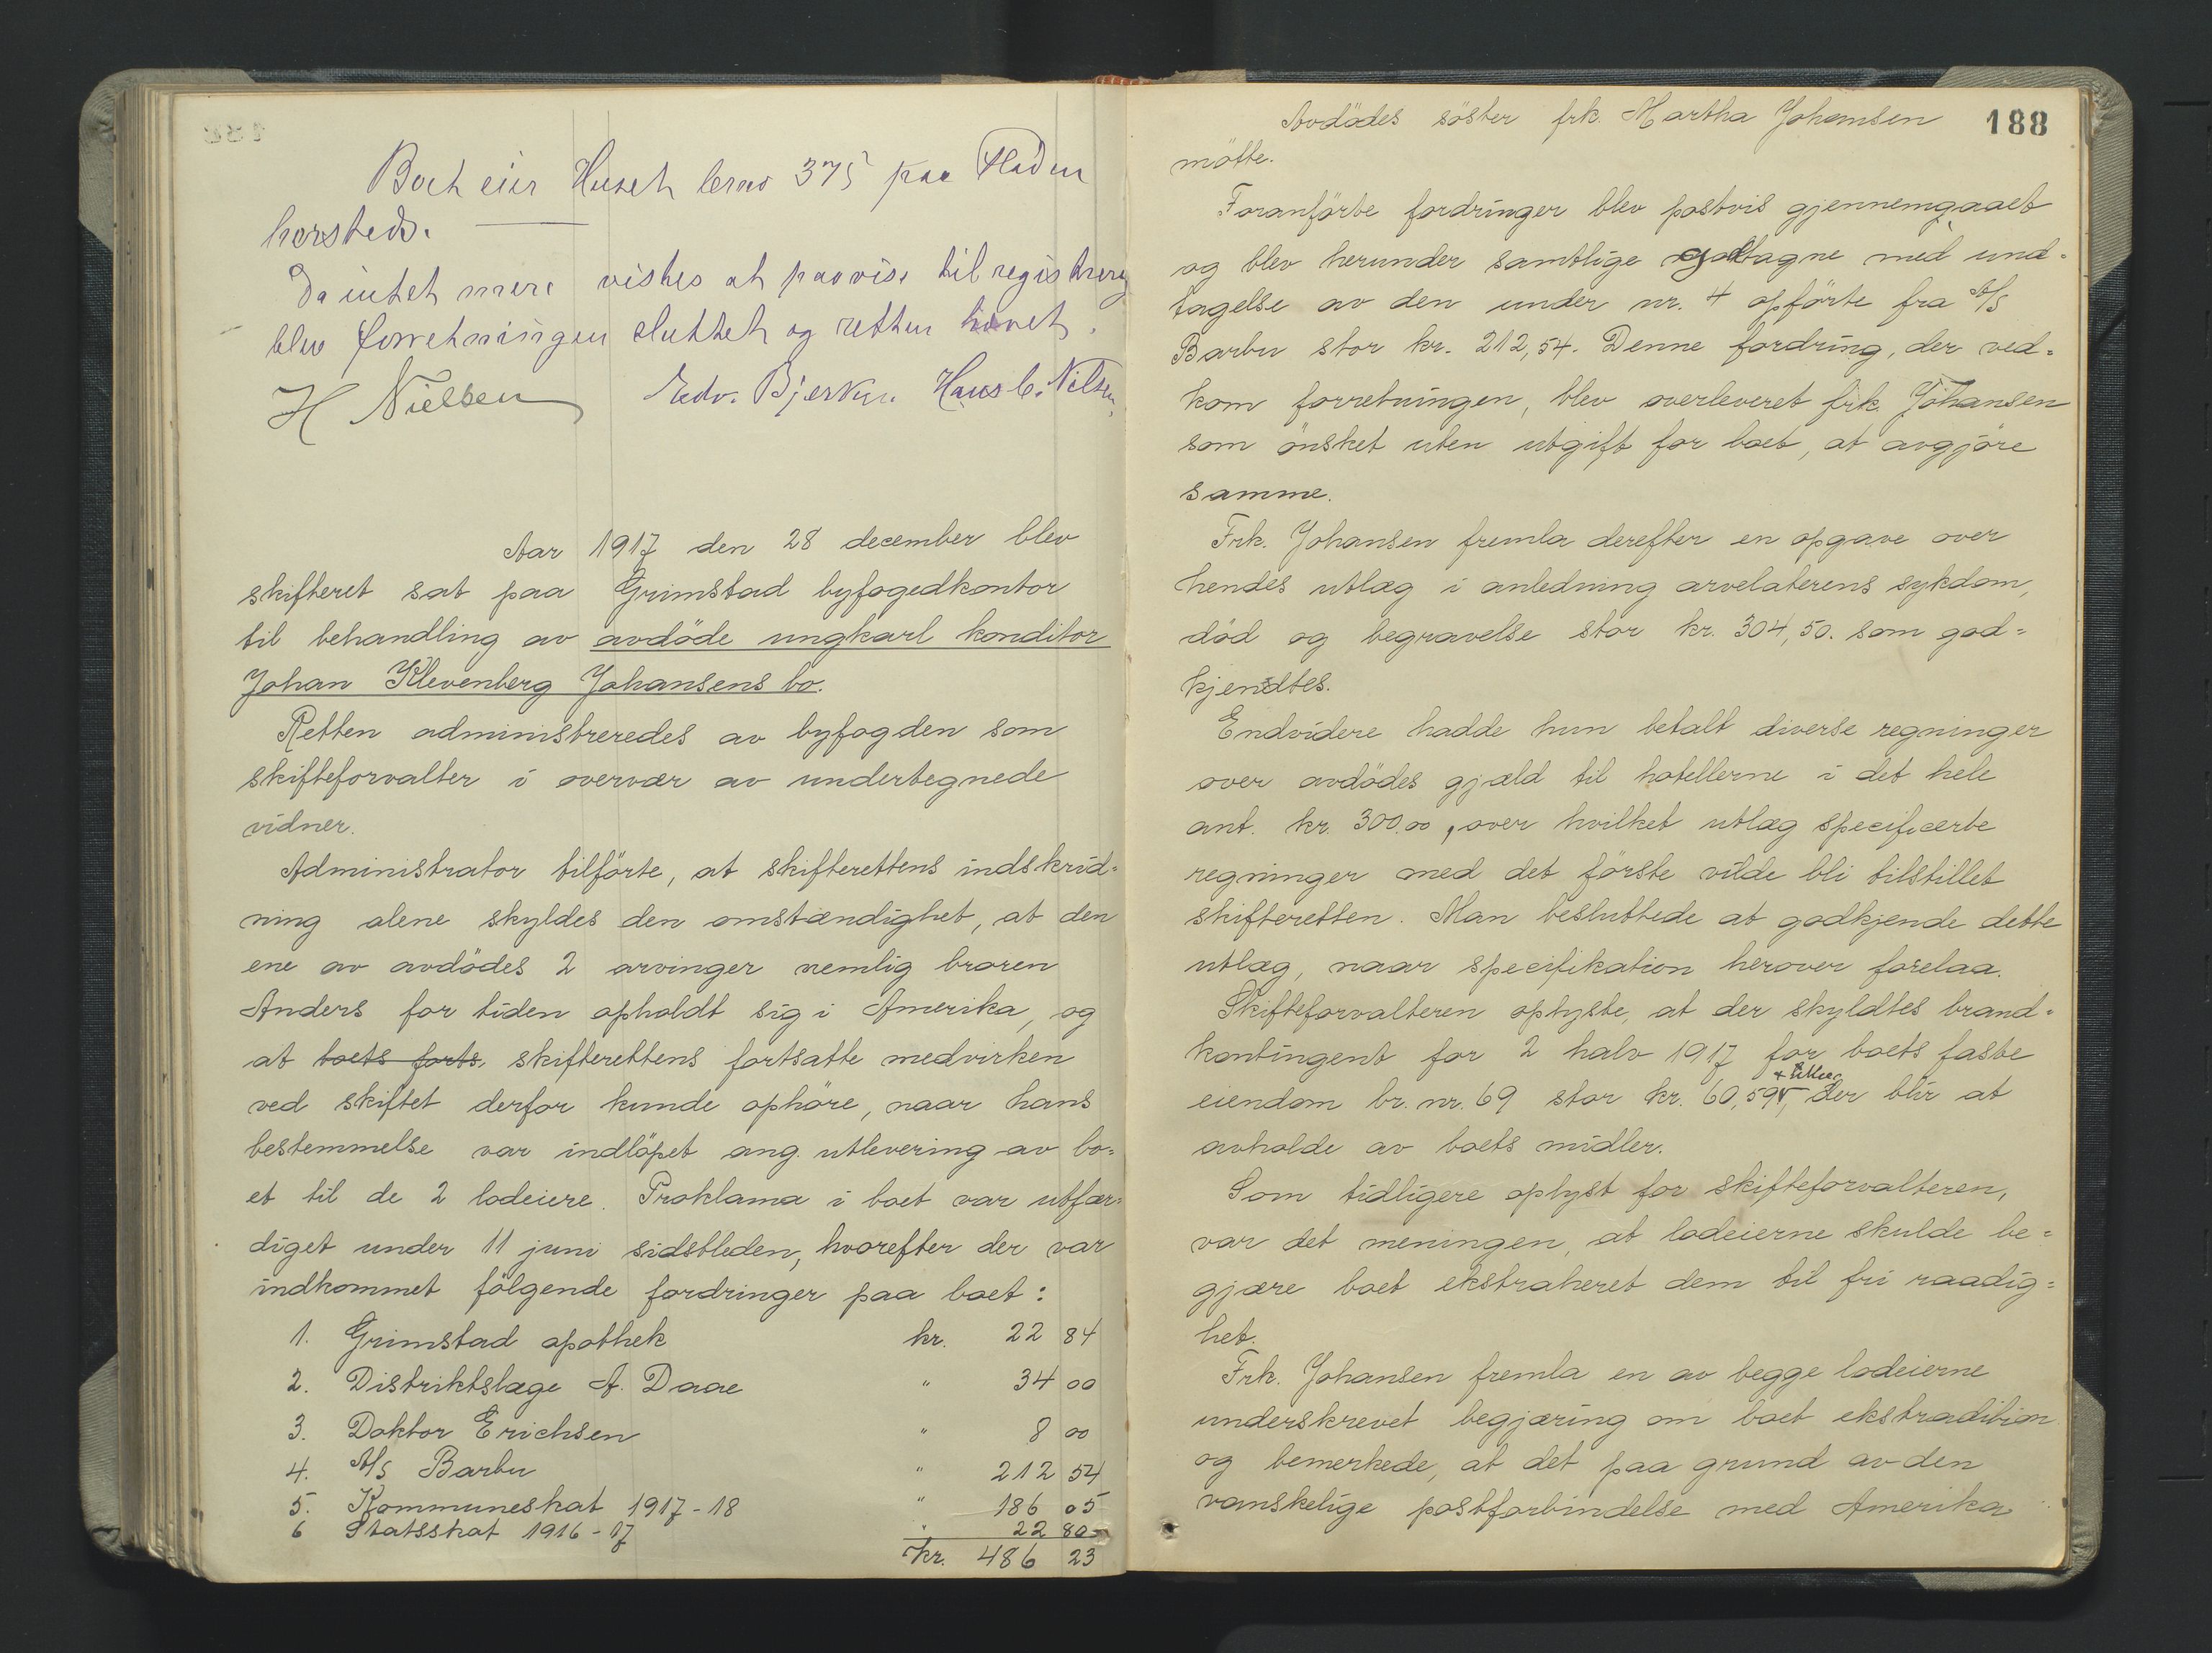 Boet eier Huset brno 375 paa Fladen
hersteds.
Da intet mere vistes at paavise til registrering
blev forretningen sluttet og retten hævet.
H Nielsen Edv. Bjerkn. Hans C. Nilsen
Aar 1917 den 28 december blev
skifteret sat paa Grimstad byfogedkontor
til behandling av avdöde ungkarl konditor
Johan Klevenberg Johansens bo.
Retten administreredes av byfogden som
skifteforvalter i overvær av undertegnede
vidner.
Administrator tilförte, at skifterettens indskrid=
ning alene skyldes den omstændighet, at den
ene av avdödes 2 arvinger nemlig broren
Anders for tiden opholdt sig i Amerika, og
at boets forts. skifterettens fortsatte medvirken
ved skiftet derfor kunde ophöre, naar hans
bestemmelse var indlöpet ang. utlevering av bo=
et til de 2 lodeiere. Proklama i boet var utfær=
diget under 11 juni sidstleden, hvorefter der var
indkommet fölgende fordringer paa boet:
1. Grimstad apothek kr. 22 84
2. Distriktslæge A. Daae " 34 00
3. Doktor Erichsen " 8 00
4. A/S Barbu " 212 54
5. Kommuneskat 1917-18 " 186 05
6 Statsskat 1916-17 " 22 80
kr. 486 23
188
Avdödes söster frk. Martha Johansen
mötte.
Foranförte fordringer blev postvis gjennemgaaet
og blev herunder samtlige godtagne med und=
tagelse av den under nr. 4 opförte fra A/S
Barbu stor kr. 212,54. Denne fordring, der ved=
kom forretningen, blev overleveret frk. Johansen
som önsket uten utgift for boet, at avgjöre
samme.
Frk. Johansen fremla derefter en opgave over
hendes utlæg i anledning arvelaterens sykdom,
död og begravelse stor kr. 304,50. som god=
kjendtes.
Endvidere hadde hun betalt diverse regninger
over avdödes gjæld til hotellerne i det hele
ant. kr. 300,00, over hvilket utlæg specificerte
regninger med det förste vilde bli tilstillet
skifteretten. Man besluttede at godkjende dette
utlæg, naar specifikation herover forelaa.
Skifteforvalteren oplyste, at der skyldtes brand=
kontingent for 2 halv 1917 for boets faste
eiendom br. nr. 69 stor kr. 60,59, der blir at
avholde av boets midler.
Som tidligere oplyst for skifteforvalteren,
var det meningen, at lodeierne skulde be=
gjære boet ekstraheret dem til fri raadig=
het.
Frk. Johansen fremla en av begge lodeierne
underskrevet begjæring om boet ekstradition
og bemerkede, at det paa grund av den
vanskelige postforbindelse med Amerika